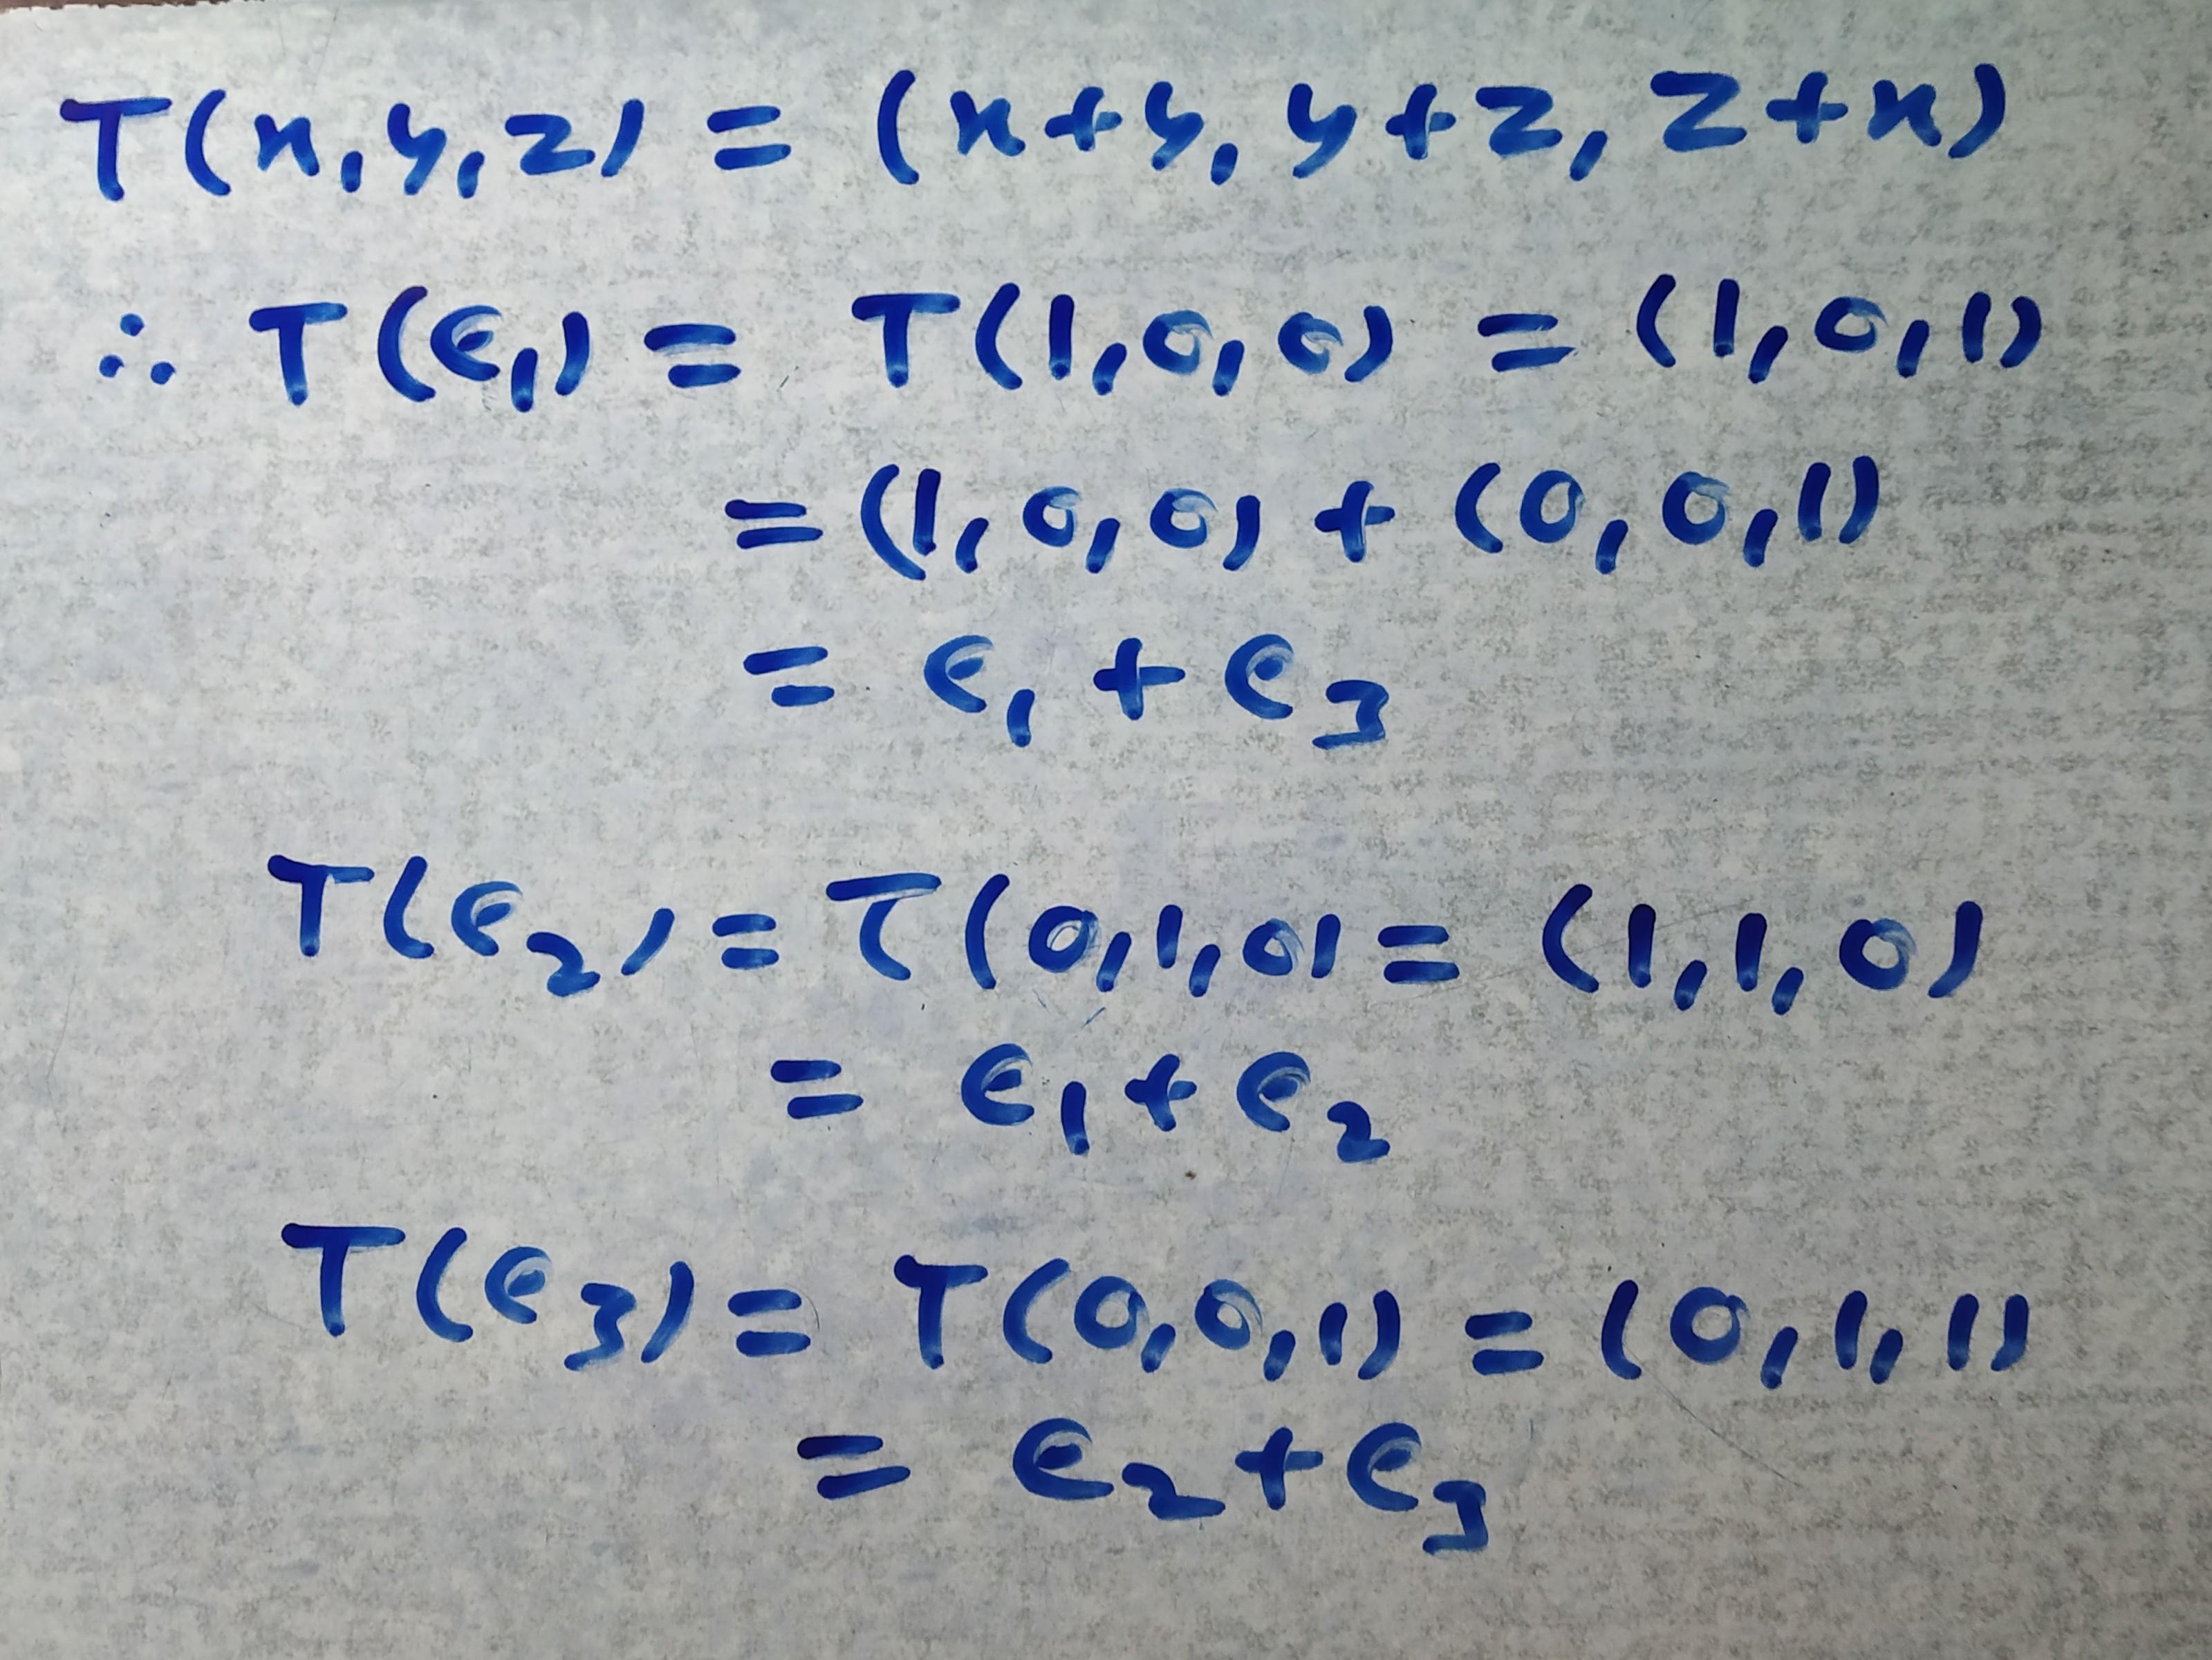 T(x,y,z) = (x+y, y+z, z+x)
∴ T(e₁) = T(1,0,0) = (1,0,1)
= (1,0,0) + (0,0,1)
= e₁ + e₃
T(e₂) = T(0,1,0) = (1,1,0)
= e₁ + e₂
T(e₃) = T(0,0,1) = (0,1,1)
= e₂ + e₃